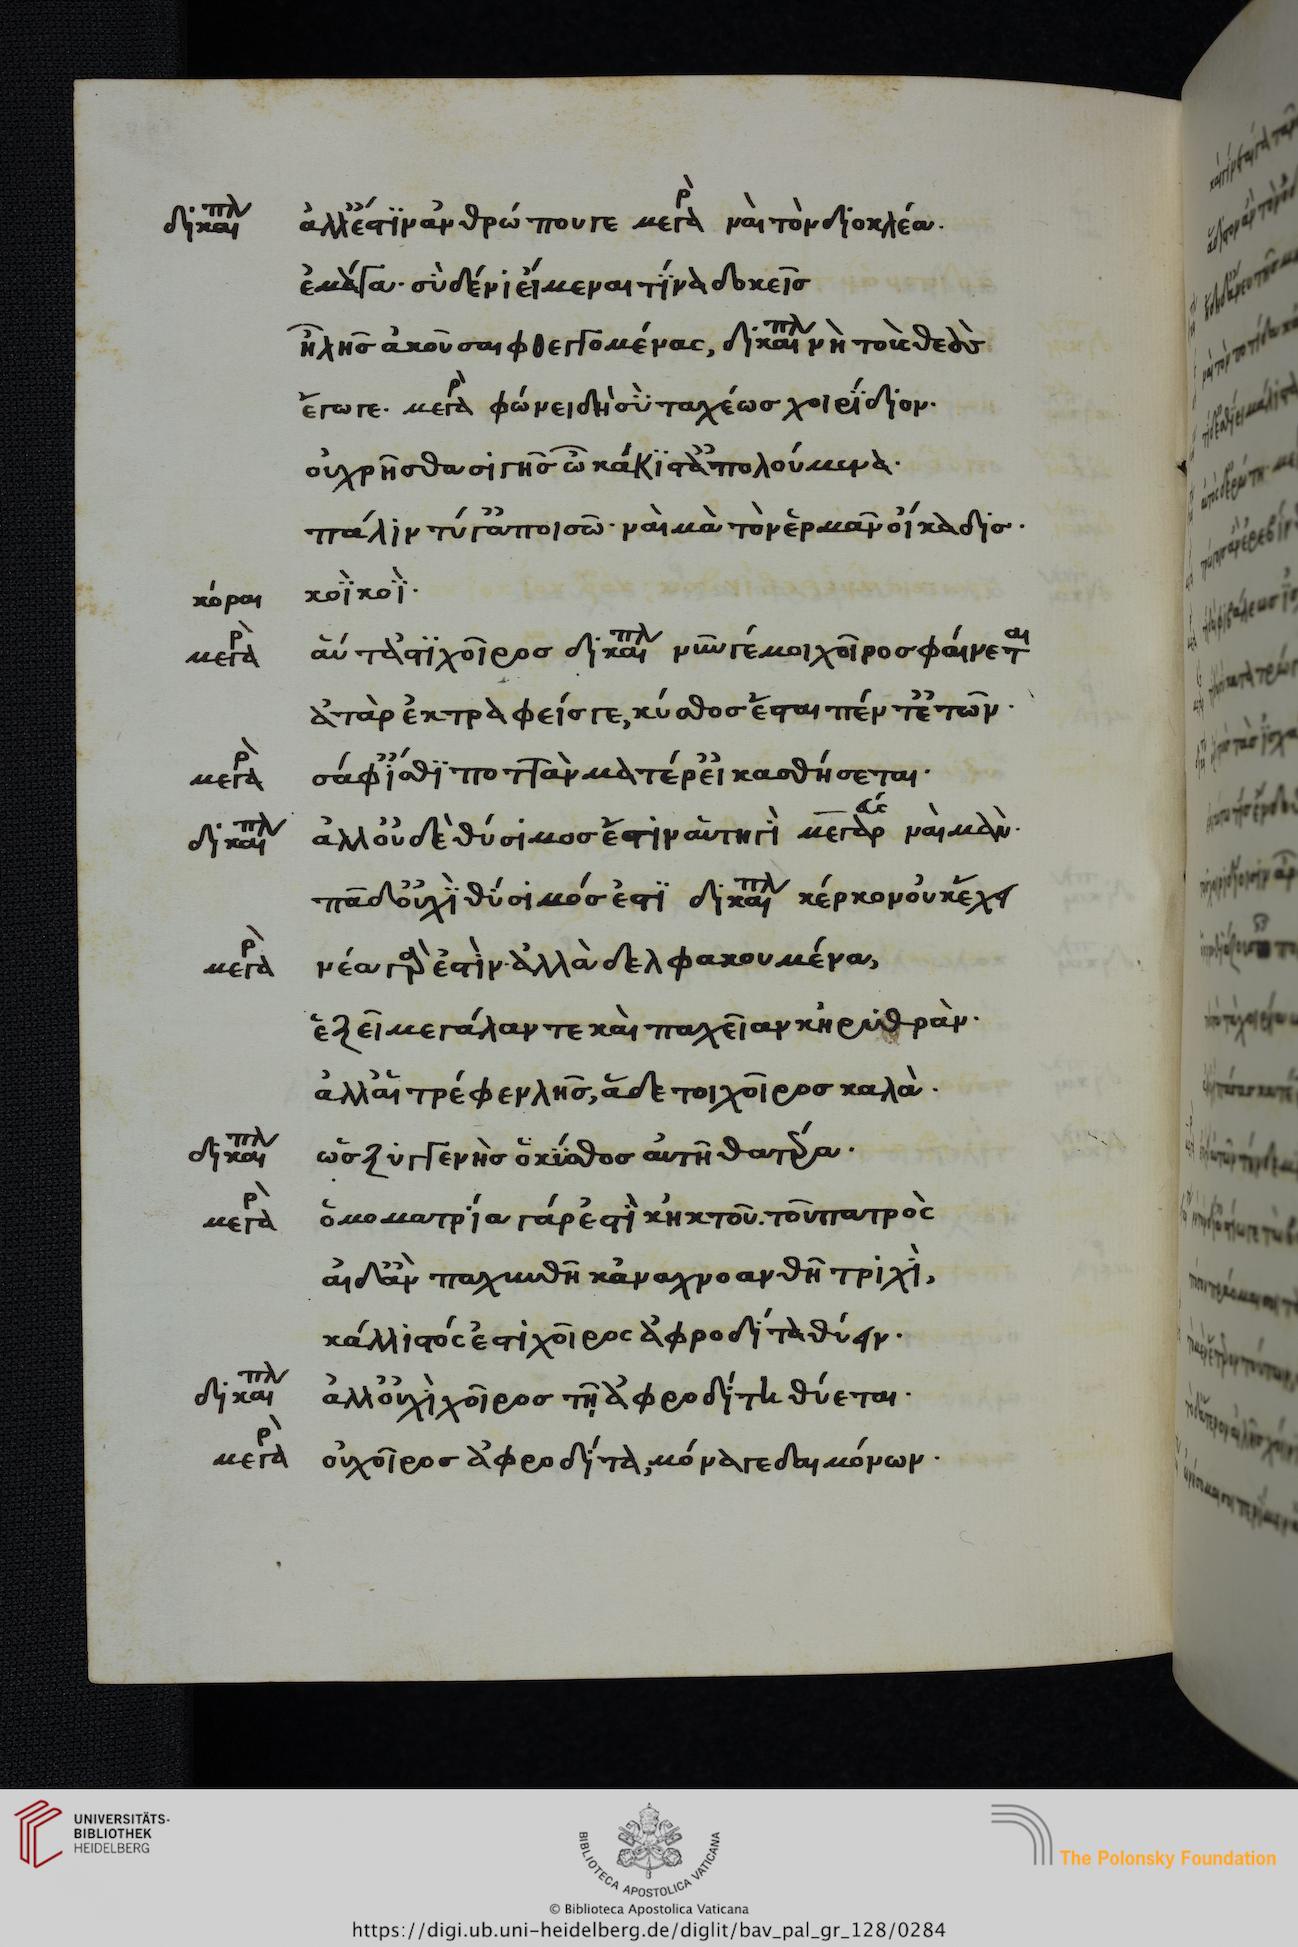 δικαιπλ ἀλλ' ἔστιν ἀνθρώπου γε μεγαρ ναὶ τὸν διοκλέα.
ἐμάγα· σὺ δέ νι εἴμεναι τίνα δοκεῖς
ἦ λῆς ἀκοῦσαι φθεγγομένας, δικαιπλ νὴ τοὺς θεοὺς
ἔγωγε· μεγαρ φώνει δὴ σὺ ταχέως χοιρίδιον.
οὐ χρῆσθα σιγῆς ὦ κάκιστ' ἀπολουμένα.
πάλιν τύ γ' ἀποισῶ ναὶ μὰ τὸν ἑρμᾶν οἴκαδις.
κόραι κοῒ κοΐ.
μεγαρ αὕτα στὶ χοῖρος δικαιπλ νῦν γέ μοι χοῖρος φαίνεται
ἀτὰρ ἐκτραφείς γε, κύσθος ἔσται πέντ' ἐτῶν.
μεγαρ σάφ' ἴσθι ποττὰν ματέρ' εἰκασθήσεται.
δικαιπλ ἀλλ' οὐδὲ θύσιμος ἔστιν αὑτηγὶ μεγαρ ναὶ μάν.
πᾶ δ' οὐχὶ θύσιμός ἐστι δικαιπλ κέρκον οὐκ ἔχει
μεγαρ νέα γάρ ἐστιν· ἀλλὰ δελφακουμένα,
ἑξεῖ μεγάλαν τε καὶ παχεῖαν κἠρυθράν.
ἀλλ' αἰ τρέφεν λῆς, ἅδε τοι χοῖρος καλά.
δικαιπλ ὡς ξυγγενὴς ὁ κύσθος αὐτῆ θατέρα.
μεγαρ ὁμοματρία γάρ ἐστι κἠκ τοῦ. τοῦ πατρὸς
αἰ δ' ἂν παχυνθῆ κἀναχνοανθῆ τριχί,
κάλλιστός ἐστι χοῖρος ἀφροδίτα θύειν.
δικαιπλ ἀλλ' οὐχὶ χοῖρος τῆ ἀφροδίτη θύεται.
μεγαρ οὐ χοῖρος ἀφροδίτα, μόνα γε δαιμόνων.
UNIVERSITÄTS-
BIBLIOTHEK
HEIDELBERG
BIBLIOTECA APOSTOLICA VATICANA
The Polonsky Foundation
© Biblioteca Apostolica Vaticana
https://digi.ub.uni-heidelberg.de/diglit/bav_pal_gr_128/0284